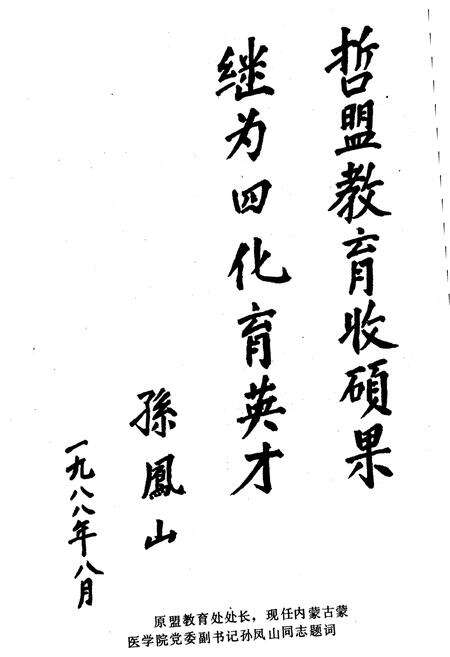 哲盟教育收硕果
继为四化育英才
孫鳳山
一九八八年八月
原盟教育处处长，现任内蒙古蒙
医学院党委副书记孙凤山同志题词